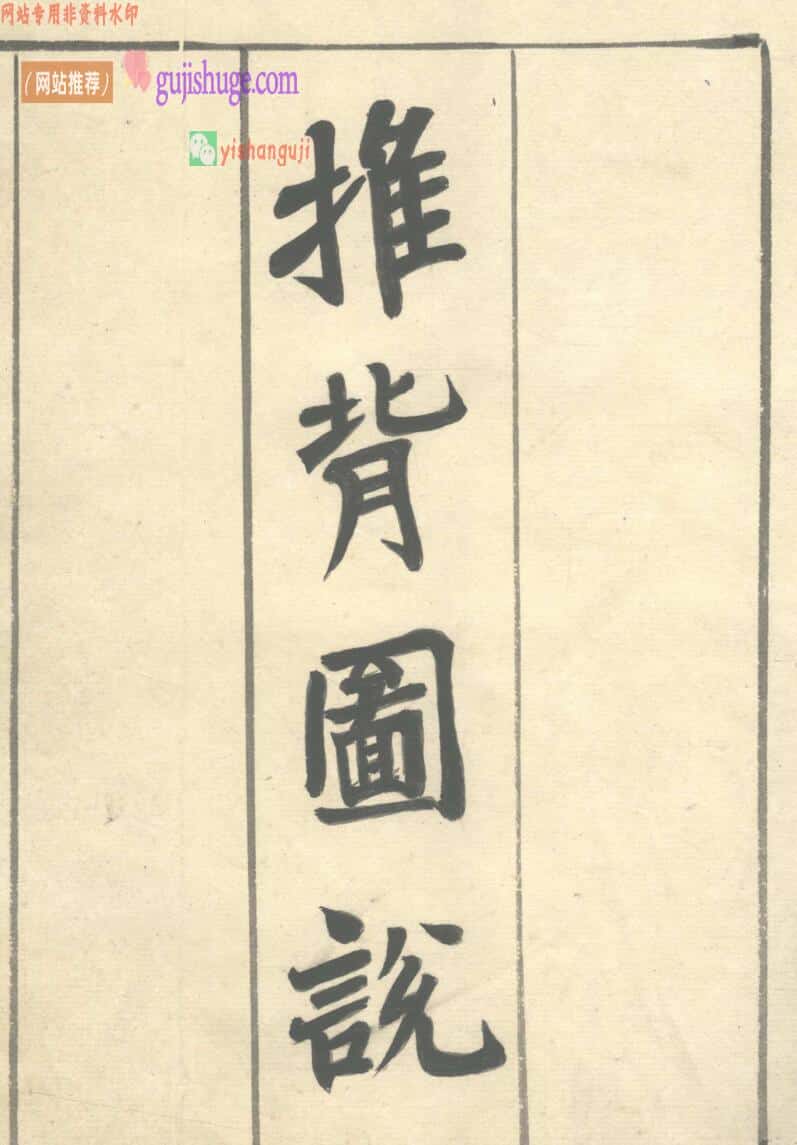 网站专用非资料水印
（网站推荐）
gujishuge.com
yishanguji
推背圖說